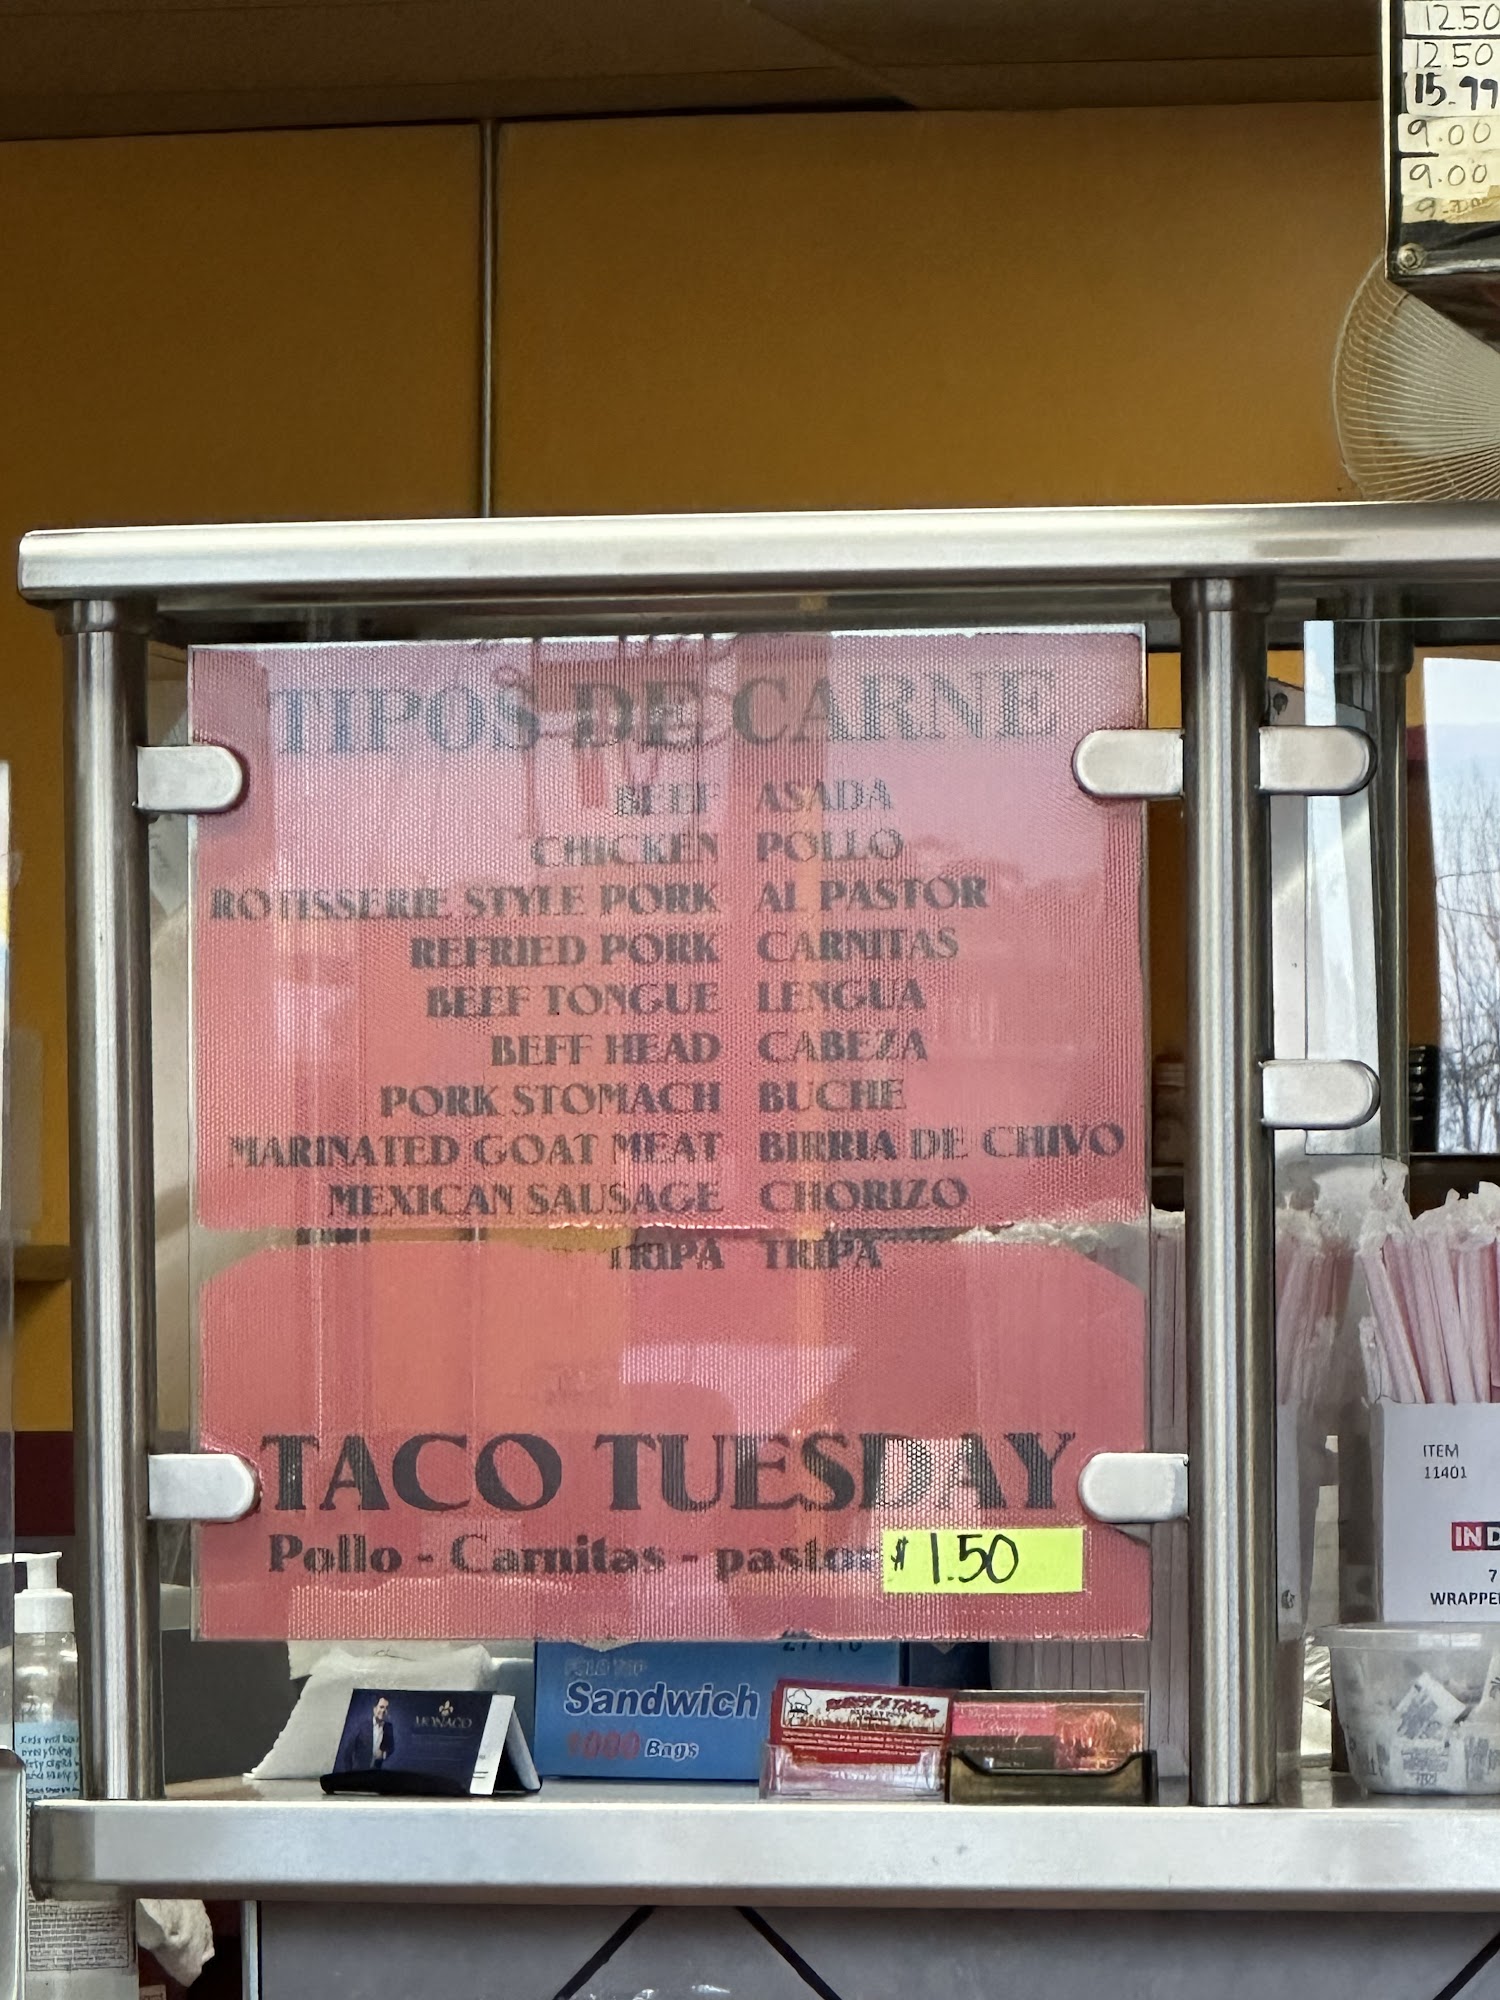 12.50
12.50
15.99
9.00
9.00
TIPOS DE CARNE
BEEF ASADA
CHICKEN POLLO
ROTISSERIE STYLE PORK AL PASTOR
REFRIED PORK CARNITAS
BEEF TONGUE LENGUA
BEFF HEAD CABEZA
PORK STOMACH BUCHE
MARINATED GOAT MEAT BIRRIA DE CHIVO
MEXICAN SAUSAGE CHORIZO
TRIPA TRIPA
TACO TUESDAY
Pollo - Carnitas - pastor $1.50
ITEM
11401
IND
7
WRAPPE
FOLD TOP
Sandwich
1000 Bags
MONACO
RUBEN'S TACOS